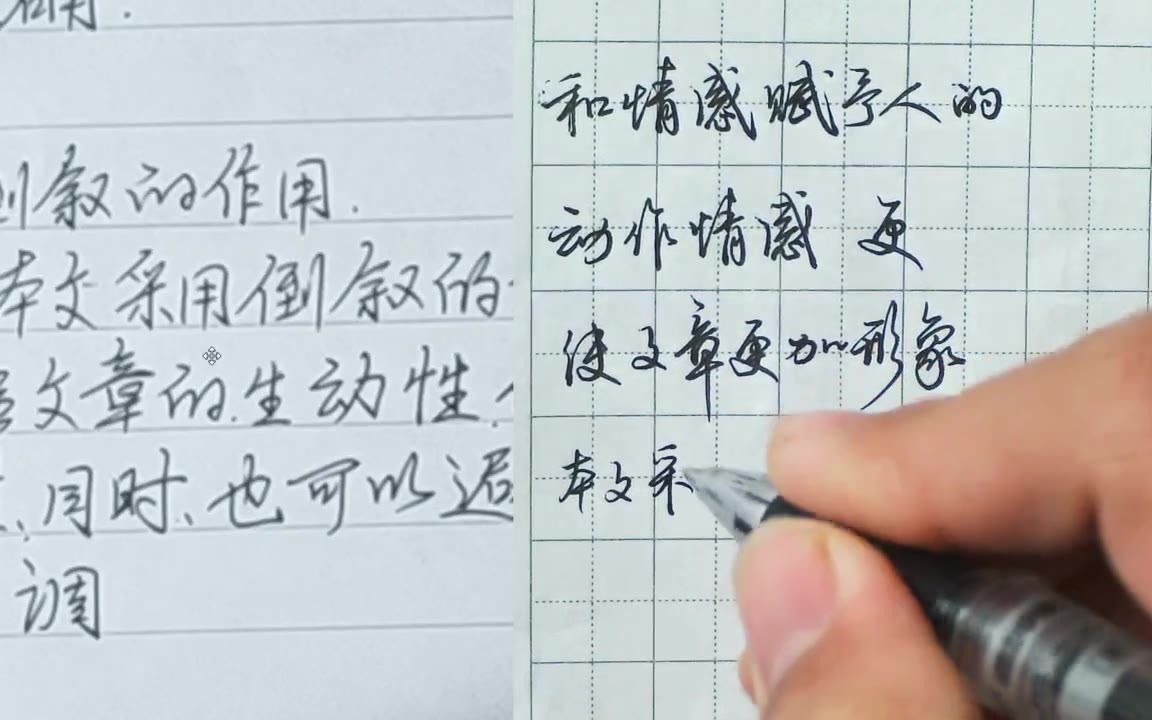 叙的作用.
本文采用倒叙的
文章的生动性,
同时,也可以
调
和情感赋予人的
动作情感 更
使文章更加形象
本文采